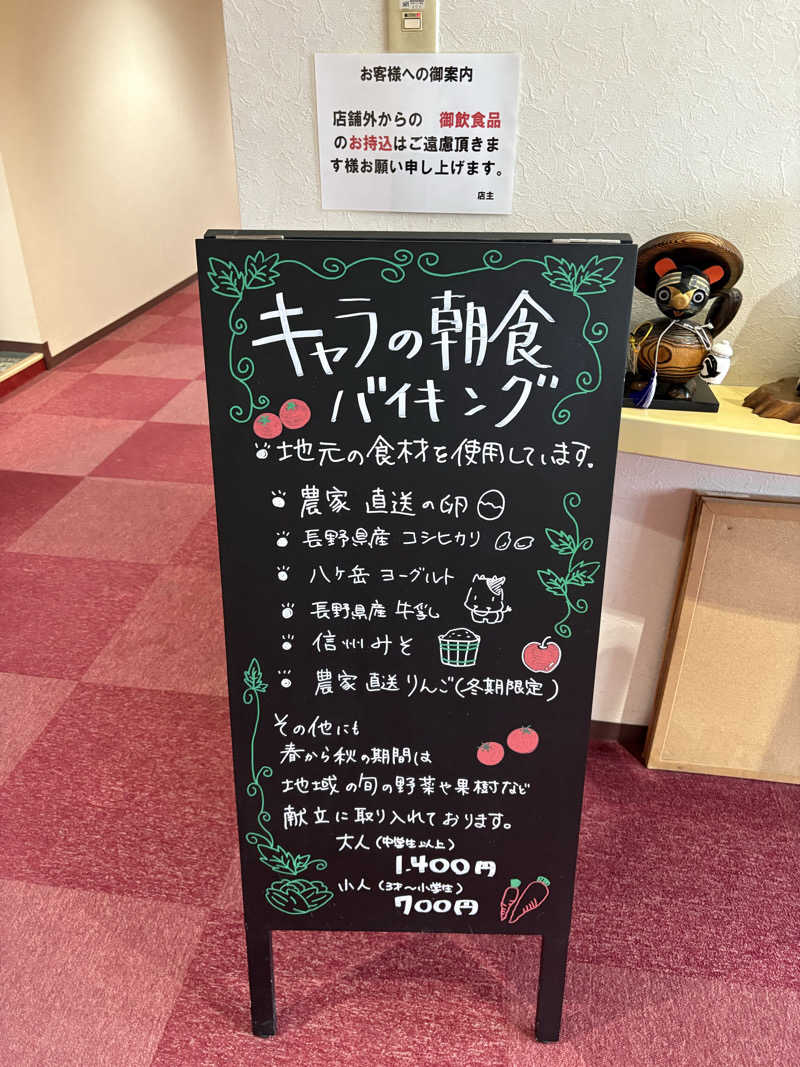 お客様への御案内
店舗外からの 御飲食品
のお持込はご遠慮頂きま
す様お願い申し上げます。
店主
キャラの朝食
バイキング
地元の食材を使用しています。
農家 直送の卵
長野県産 コシヒカリ
八ヶ岳 ヨーグルト
長野県産 牛乳
信州みそ
農家 直送りんご(冬期限定)
その他にも
春から秋の期間は
地域の旬の野菜や果樹など
献立に取り入れております。
大人(中学生以上)
1.400円
小人(3才〜小学生)
700円